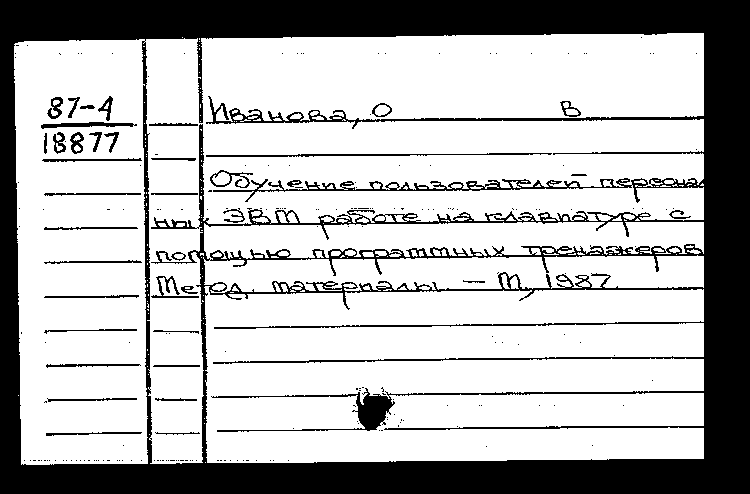 87-4
18877
Иванова, О В
Обучение пользователей персонал
ных ЭВМ работе на клавиатуре с
помощью программных тренажеров
Метод. материалы. — М, 1987